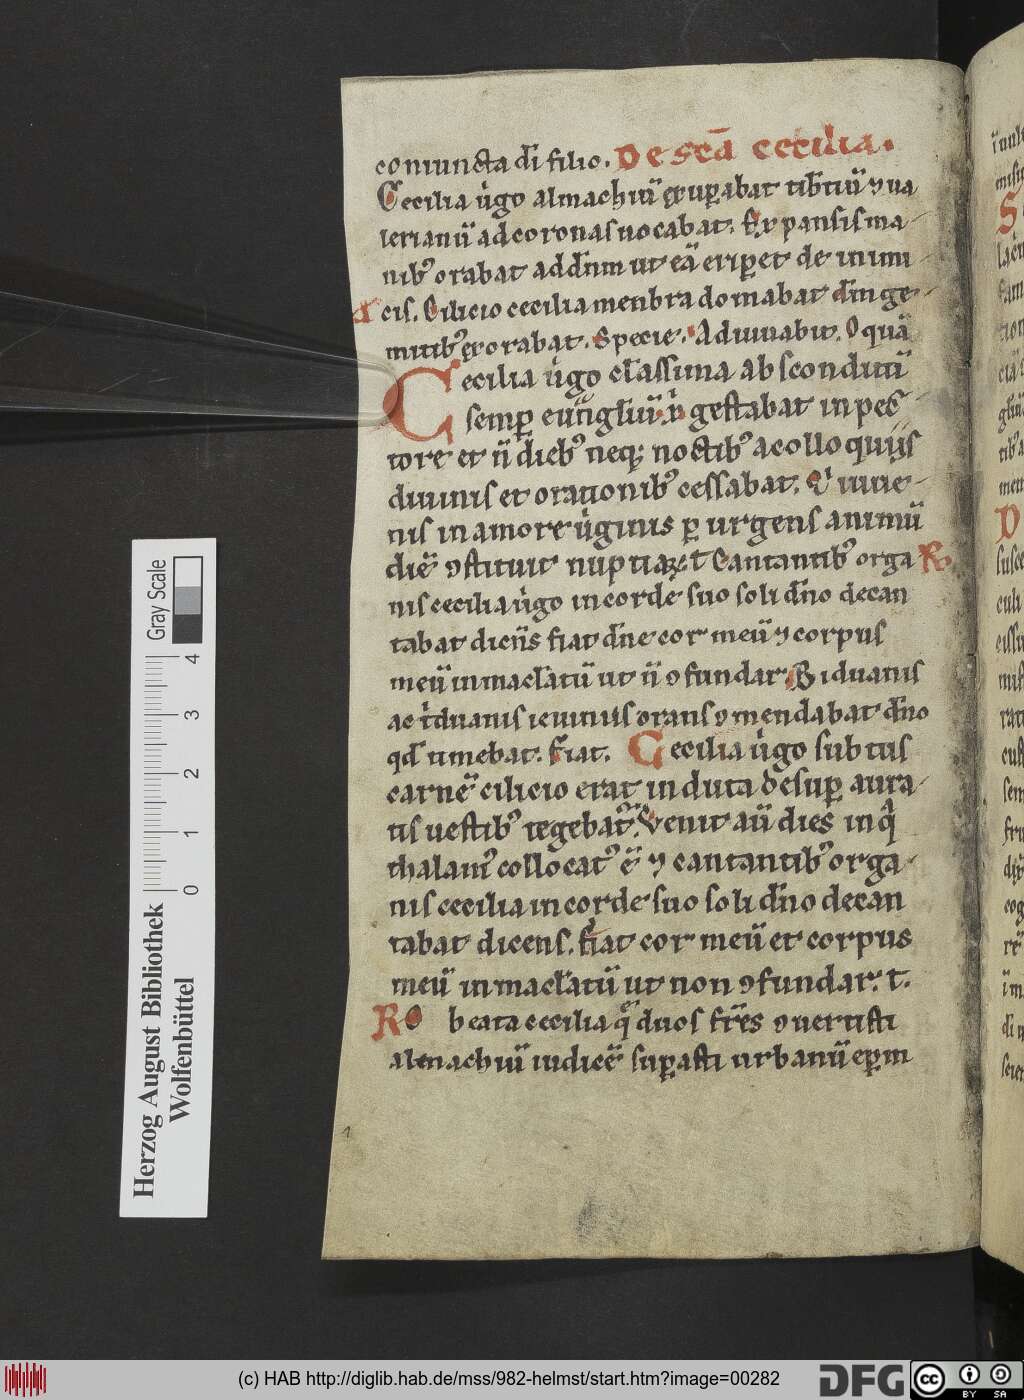 coniuncta dī filio. De scā cecilia.
Cecilia úgo almachiū exupabat tib̄tiū ꝯ ua
lerianū ad coronas uocabat. Ex pansis ma
nibꝰ orabat ad dn̄m ut eā eriꝑet de inimi
A cis. Cilicio cecilia menbra domabat dm̄ ge
mitibꝰ exorabat. Specie. Adiuuabit. O quā
Cecilia úgo cl̄assima absconditū
semꝑ euu̅gl̄iū gestabat in pec
tore et ñ diebꝰ neqꝫ noctibꝰ a colloquiis
diuinis et orationibꝰ cessabat. iuue
nis in amore úginis ꝑ urgens animū
diē ꝯstituit nuptiaꝝ. t Cantantibꝰ orga R
nis cecilia úgo in corde suo soli dn̄o decan
tabat dicēs fiat dn̄e cor meū ꝯ corpus
meū inmacl̄atū ut ñ ꝯfundar. Biduanis
ac tⁱduanis ieiuniis orans ꝯmendabat dn̄o
qd̄ timebat. Fiat. Cecilia úgo subtus
carnē cilicio erat induta desuꝑ aura
tis uestibꝰ tegebat. Venit aū dies in qͣ
thalamꝰ collocatꝰ ē ꝯ cantantibꝰ orga
nis cecilia in corde suo soli dn̄o decan
tabat dicens. fiat cor meū et corpus
meū inmacl̄atū ut non ꝯfundar. t.
R O beata cecilia q̄ duos frēs ꝯuertisti
almachiū iudicē suꝑasti urbanū eꝑm
1
Herzog August Bibliothek
Wolfenbüttel
0 1 2 3 4
Gray Scale
(c) HAB http://diglib.hab.de/mss/982-helmst/start.htm?image=00282
DFG
cc BY SA